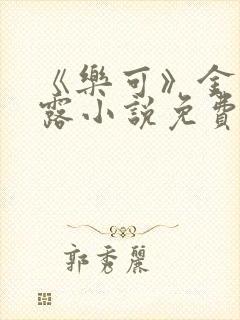 《樂可》金
露小説免費
郭秀麗